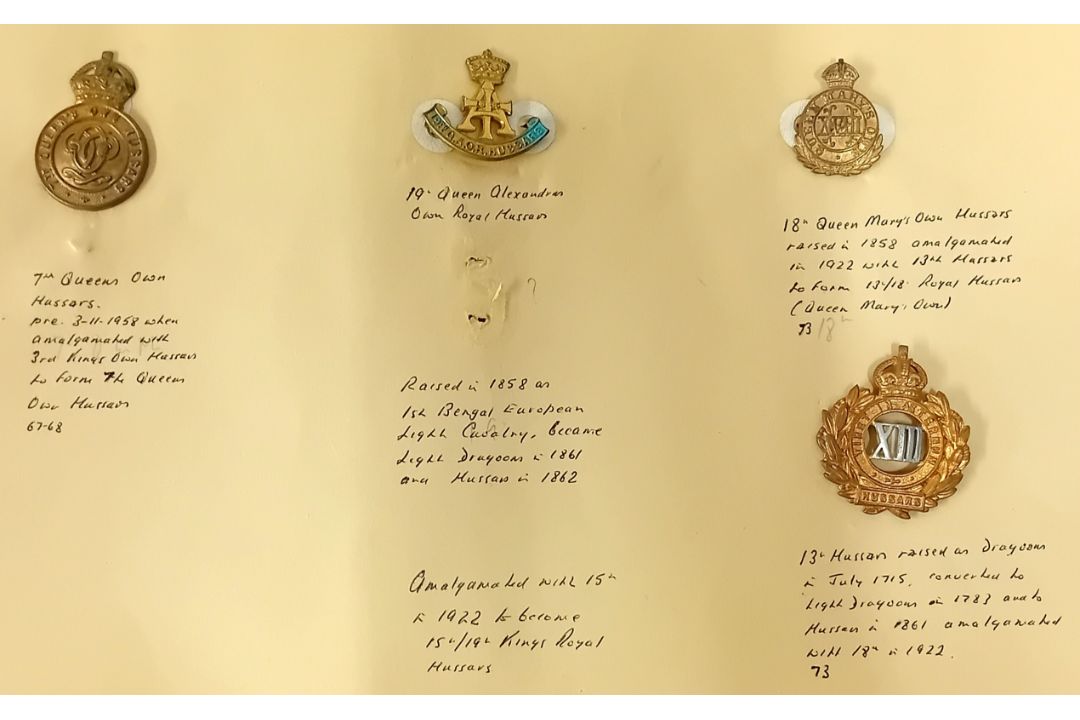 7TH QUEEN'S OWN HUSSARS
7th Queens Own
Hussars.
pre. 3-11-1958 when
amalgamated with
3rd Kings Own Hussars
to form The Queens
Own Hussars
67-68
HUSSARS
19th Queen Alexandras
Own Royal Hussars
?
Raised in 1858 as
1st Bengal European
Light Cavalry, became
Light Dragoons in 1861
and Hussars in 1862
Amalgamated with 15th
in 1922 to become
15th/19th Kings Royal
Hussars
QUEEN MARY'S OWN
XVIII
18th Queen Mary's Own Hussars
raised in 1858 amalgamated
in 1922 with 13th Hussars
to form 13th/18th Royal Hussars
(Queen Mary's Own)
73 18th
XIII
HUSSARS
13th Hussars raised as Dragoons
in July 1715, converted to
Light Dragoons in 1783 and to
Hussars in 1861 amalgamated
with 18th in 1922.
73